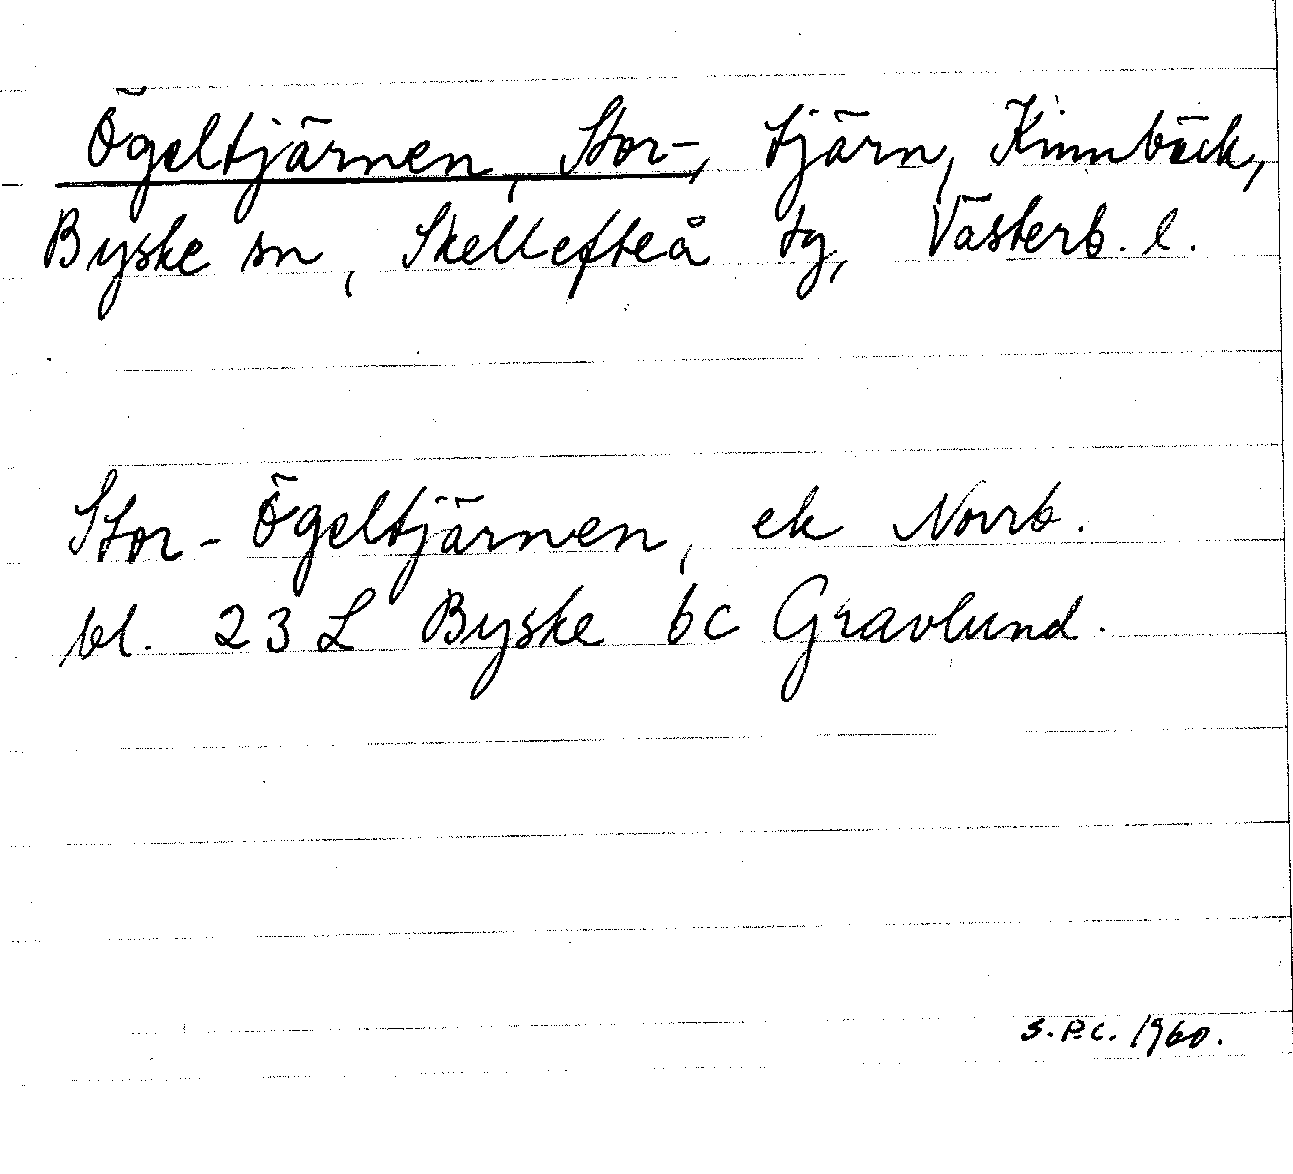 Ögeltjärnen, Stor-, tjärn, Kinnbäck,
Byske sn, Skellefteå tg, Västerb. l.
Stor-Ögeltjärnen, ek Norrb.
bl. 23 L Byske bc Gravlund.
S.P.C. 1960.